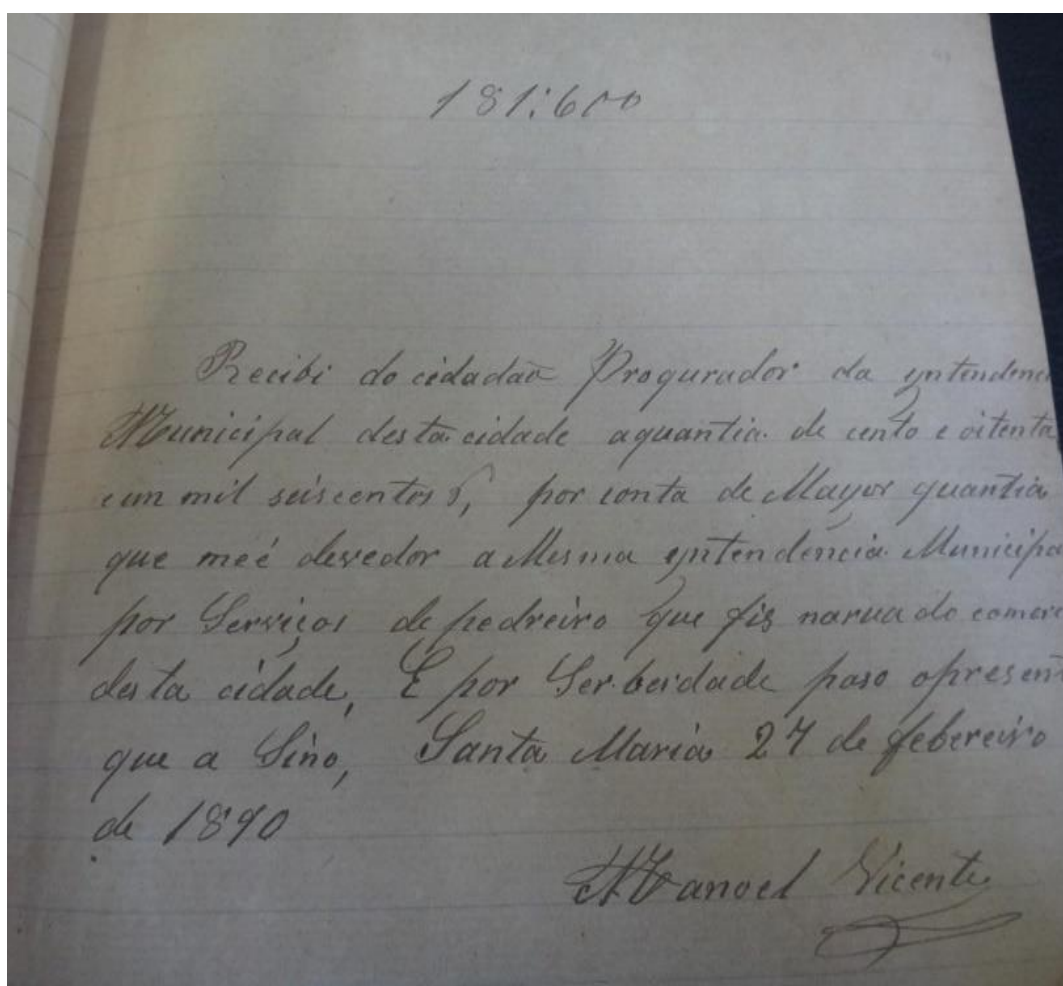 181:600
Recibi do cidadão Progurador da yntendenc
Municipal desta cidade aquantia de cento e oitenta
eum mil seiscentos $, por conta de Mayor quantia
que meé devedor a Mesma yntendencia Municipa
por Serviços de pedreiro que fis narua do comerc
desta cidade, E por Ser berdade paso opresent
que a Sino, Santa Maria 27 de febereiro
de 1890
Manoel Vicente